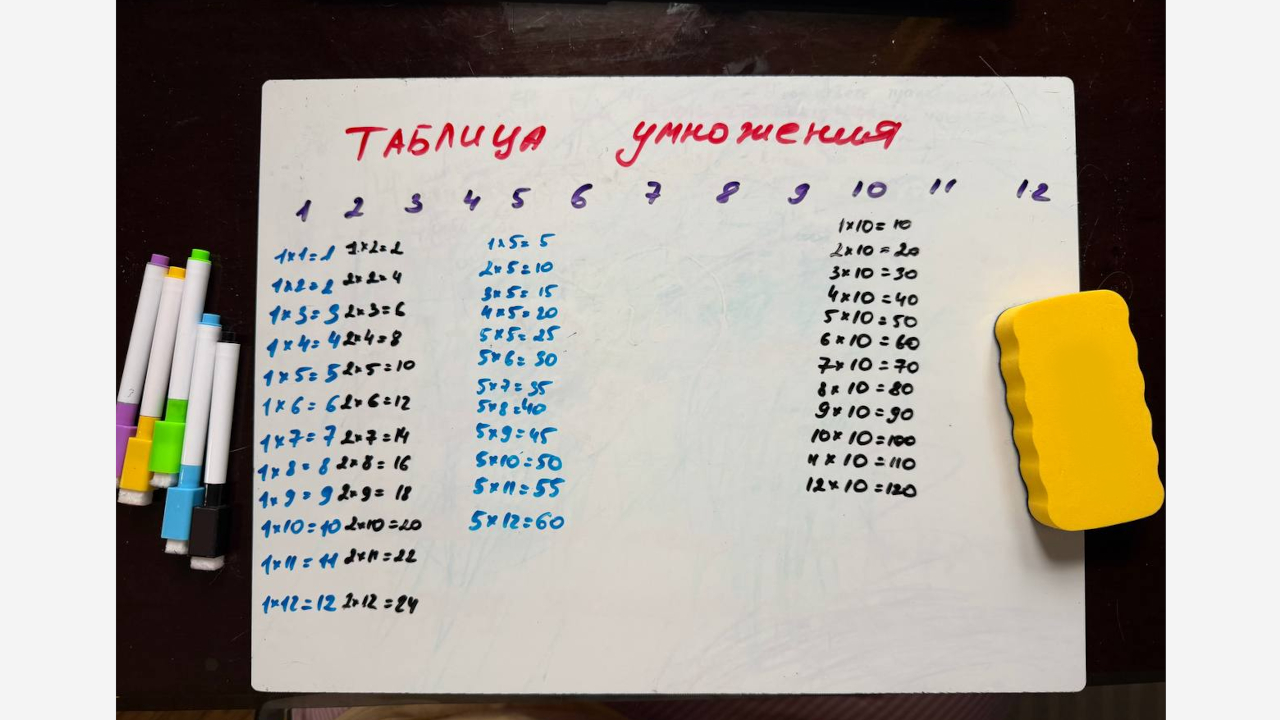 ТАБЛИЦА умножения
1 2 3 4 5 6 7 8 9 10 11 12
1×1=1
1×2=2
1×3=3
1×4=4
1×5=5
1×6=6
1×7=7
1×8=8
1×9=9
1×10=10
1×11=11
1×12=12
1×2=2
2×2=4
2×3=6
2×4=8
2×5=10
2×6=12
2×7=14
2×8=16
2×9=18
2×10=20
2×11=22
2×12=24
1×5=5
2×5=10
3×5=15
4×5=20
5×5=25
5×6=30
5×7=35
5×8=40
5×9=45
5×10=50
5×11=55
5×12=60
1×10=10
2×10=20
3×10=30
4×10=40
5×10=50
6×10=60
7×10=70
8×10=80
9×10=90
10×10=100
11×10=110
12×10=120